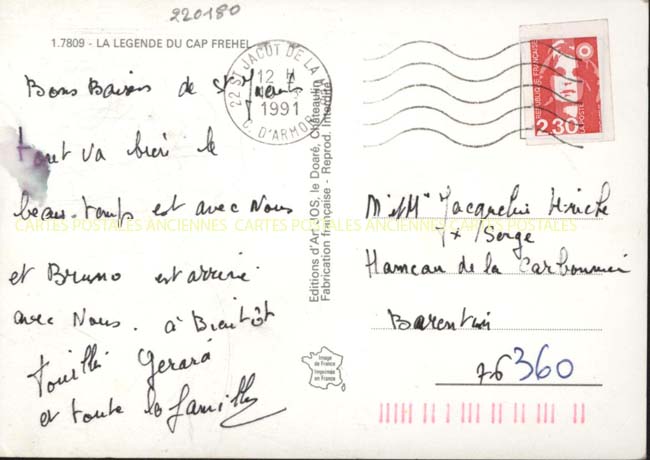 220180
1.7809 - LA LEGENDE DU CAP FREHEL
Bons Baisers de St Jacut
tout va bien le
beau temps est avec Nous
et Bruno est arrivé
avec Nous. à Bientôt
Gerard
et toute la famille
22 ST JACUT DE LA MER
12 H
1991
C. D'ARMOR
Editions d'Art JOS, le Doaré, Châteaulin
Fabrication française - Reprod. Interdite
REPUBLIQUE FRANÇAISE
2,30
LA POSTE
M et Me Jacqueline
Serge
Hameau de la Carbonnier
Barentin
76360
Image
de France
Imprimée
en France
CARTES POSTALES ANCIENNES CARTES POSTALES ANCIENNES CARTES POSTALES